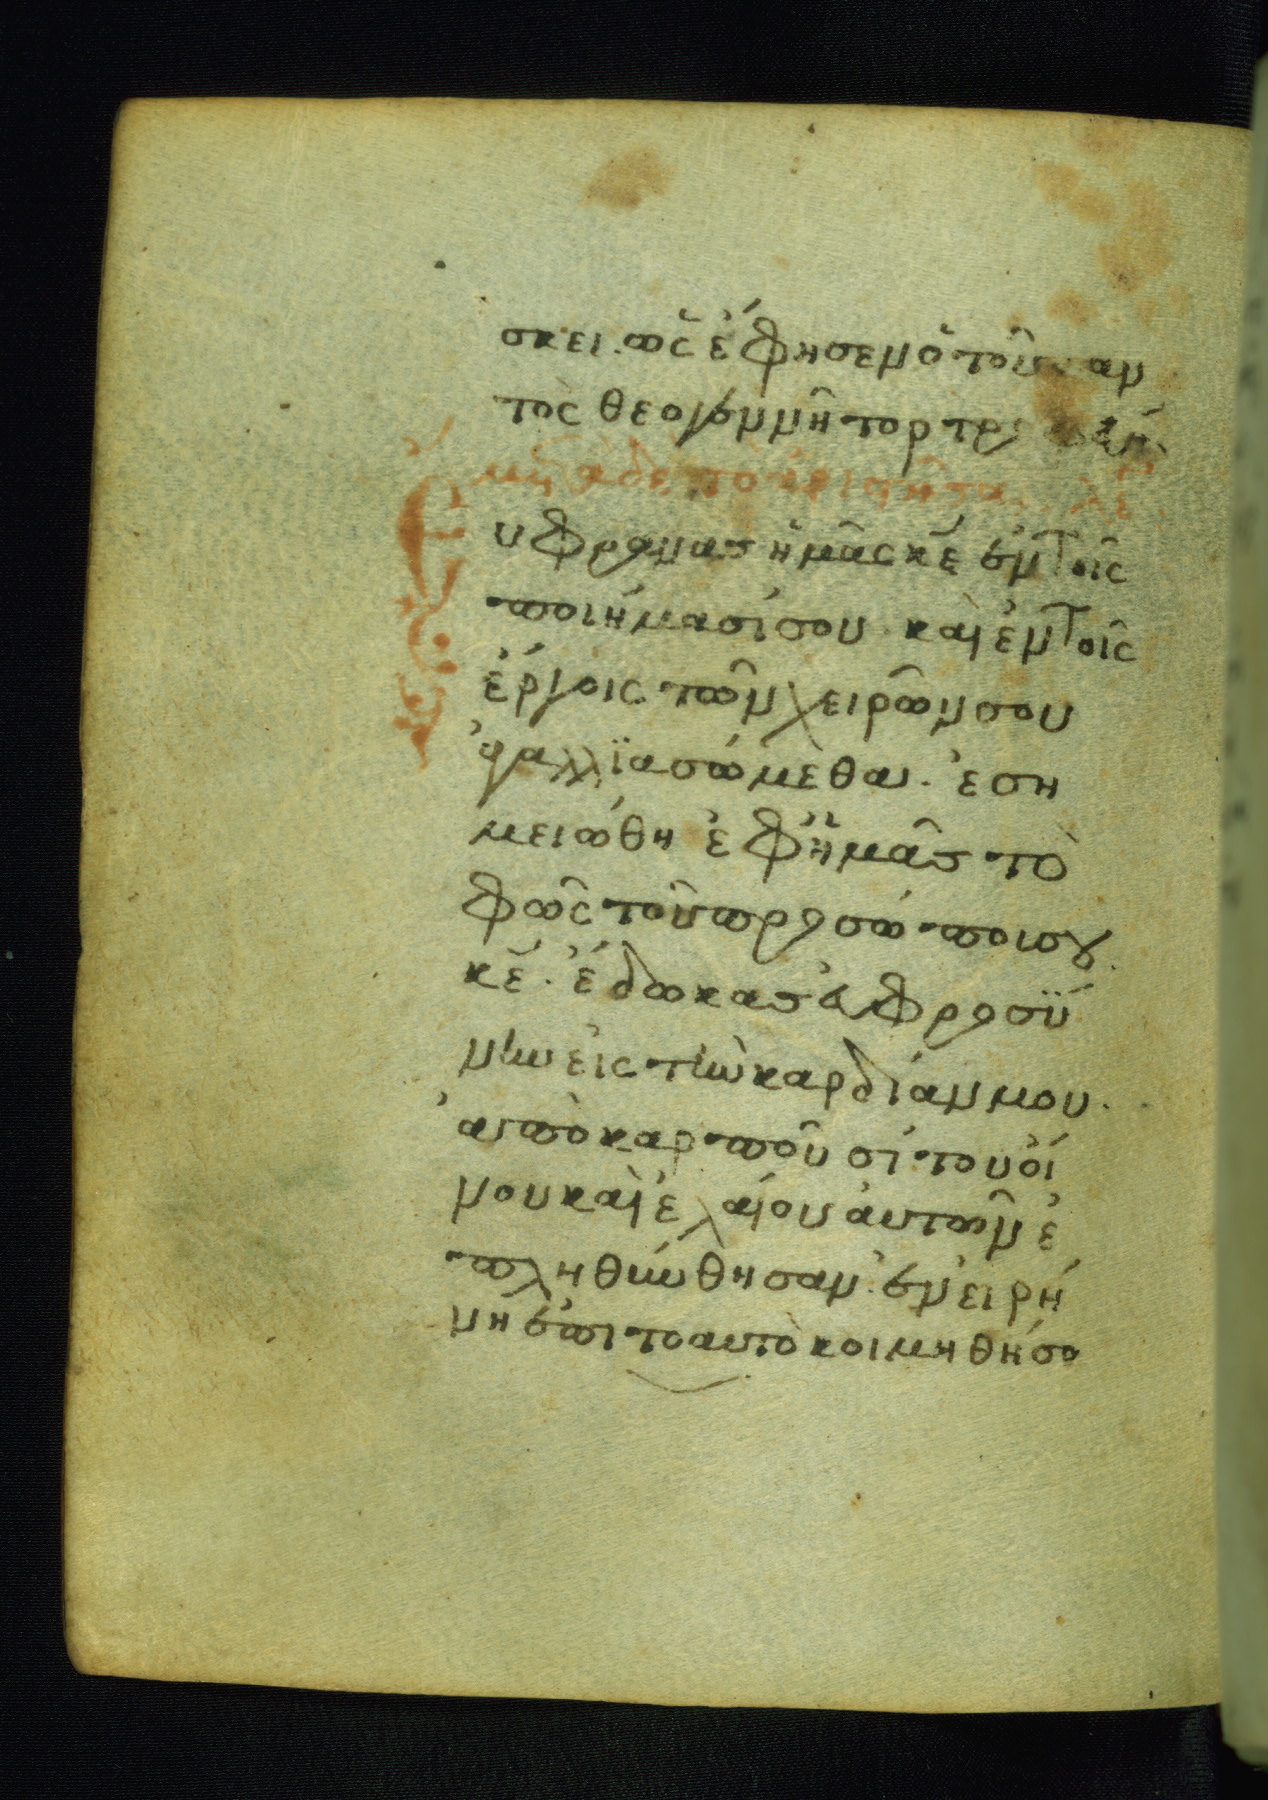 σκει. ὡς ἔφησεν ὁ τοῦ παν
τὸς θεογεννήτορ τερ
Εὔφρανας ἡμᾶς κε̄ ἐν τοῖς
ποιήμασί σου καὶ ἐν τοῖς
ἔργοις τῶν χειρῶν σου
ἀγαλλϊασώμεθα. ἐση
μειώθη ἐφ ἡμᾶς τὸ
φῶς τοῦ προσώπου σου
κε̄. ἔδωκας εὐφροσύ
νην εἰς τὴν καρδίαν μου.
ἀπὸ καρποῦ σίτου οἴ
νου καὶ ἐλαίου αὐτῶν ἐ
πληθύνθησαν. ἐν εἰρή
νη ἐπιτοαυτὸ κοιμηθήσο